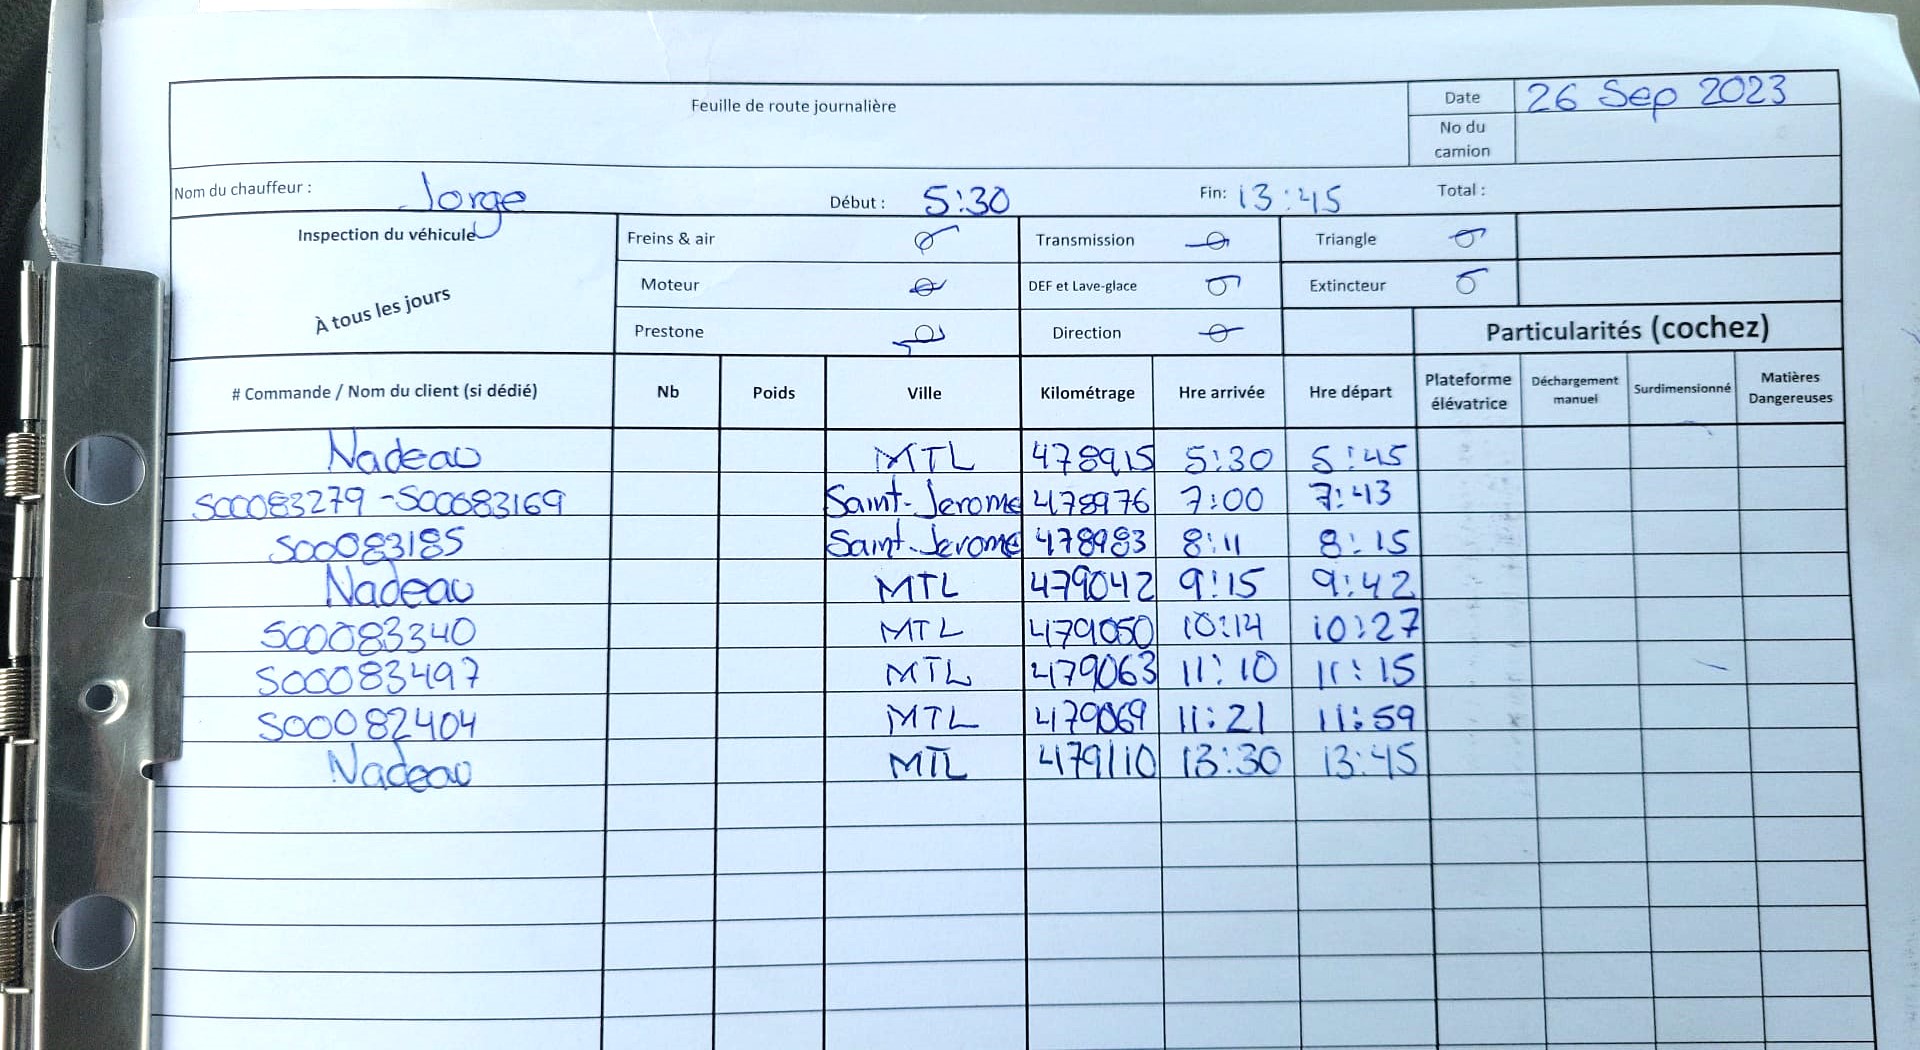 Feuille de route journalière Date 26 Sep 2023
No du camion
Nom du chauffeur : Jorge Début : 5:30 Fin: 13:45 Total :
Inspection du véhicule Freins & air Transmission Triangle
À tous les jours Moteur DEF et Lave-glace Extincteur
Prestone Direction Particularités (cochez)
# Commande / Nom du client (si dédié) Nb Poids Ville Kilométrage Hre arrivée Hre départ Plateforme élévatrice Déchargement manuel Surdimensionné Matières Dangereuses
Nadeau MTL 478915 5:30 5:45
S00083279 - S00083169 Saint-Jerome 478976 7:00 7:43
S00083185 Saint-Jerome 478983 8:11 8:15
Nadeau MTL 479042 9:15 9:42
S00083340 MTL 479050 10:14 10:27
S00083497 MTL 479063 11:10 11:15
S00082404 MTL 479069 11:21 11:59
Nadeau MTL 479110 13:30 13:45